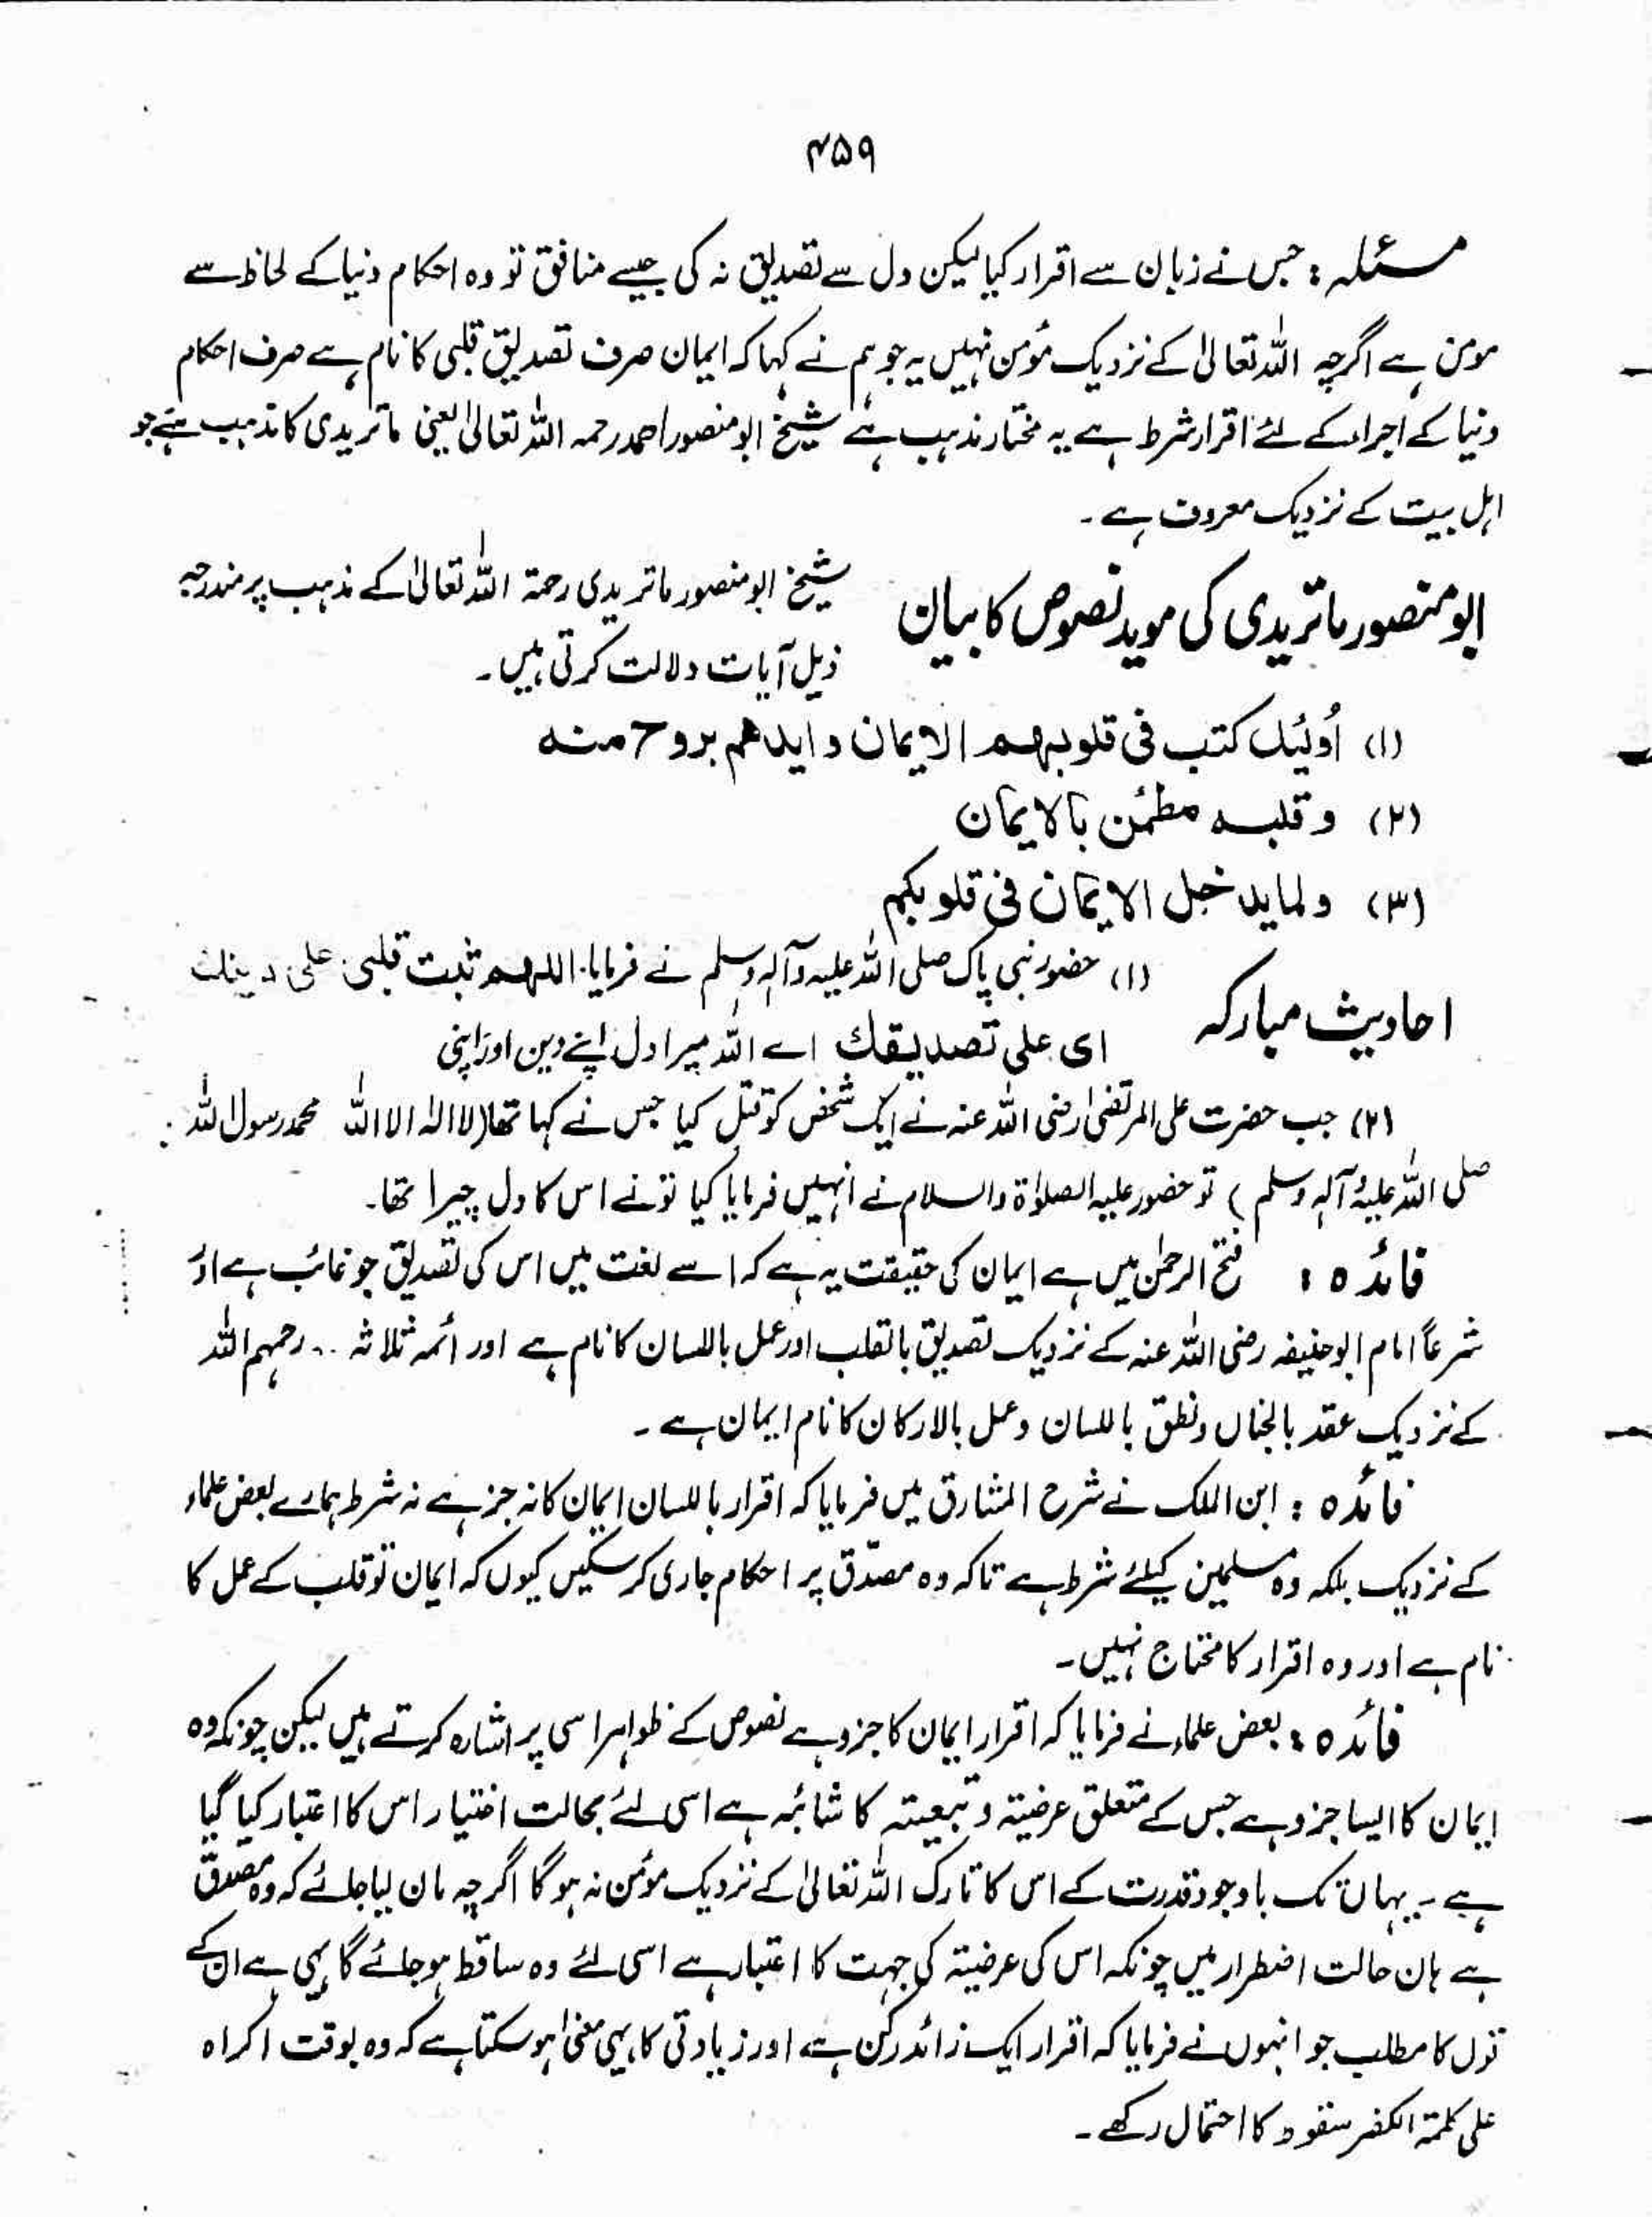 ۴۵۹
مسئلہ : جس نے زبان سے اقرار کیا لیکن دل سے تصدیق نہ کی جیسے منافق تو وہ احکام دنیا کے لحاظ سے
مومن ہے اگرچہ اللہ تعالیٰ کے نزدیک مؤمن نہیں یہ جو ہم نے کہا کہ ایمان صرف تصدیق قلبی کا نام ہے صرف احکام
دنیا کے اجراء کے لئے اقرار شرط ہے یہ مختار مذہب ہے شیخ ابو منصور احمد رحمہ اللہ تعالیٰ یعنی ماتریدی کا مذہب ہے جو
اہل بیت کے نزدیک معروف ہے ۔
ابو منصور ماتریدی کی موید نصوص کا بیان
شیخ ابو منصور ماتریدی رحمۃ اللہ تعالیٰ کے مذہب پر مندرجہ
ذیل آیات دلالت کرتی ہیں ۔
(۱) أولئك كتب فى قلوبهم الايمان و ايدهم بروح منه
(۲) و قلبه مطمئن بالايمان
(۳) ولما يدخل الايمان فى قلوبكم
احادیث مبارکہ
(۱) حضور نبی پاک صلی اللہ علیہ وآلہ وسلم نے فرمایا. اللهم ثبت قلبى على دينك
اى على تصديقك اے اللہ میرا دل اپنے دین اور اپنی
(۲) جب حضرت علی المرتضیٰ رضی اللہ عنہ نے ایک شخص کو قتل کیا جس نے کہا تھا (لا الہ الا اللہ محمد رسول اللہ
صلی اللہ علیہ وآلہ وسلم ) تو حضور علیہ الصلوٰۃ والسلام نے انہیں فرمایا کیا تو نے اس کا دل چیرا تھا ۔
فائدہ : فتح الرحمٰن میں ہے ایمان کی حقیقت یہ ہے کہ اسے لغت میں اس کی تصدیق جو غائب ہے اور
شرعاً امام ابو حنیفہ رضی اللہ عنہ کے نزدیک تصدیق بالقلب اور عمل باللسان کا نام ہے اور ائمہ ثلاثہ .. رحمہم اللہ
کے نزدیک عقد بالجنان ونطق باللسان وعمل بالارکان کا نام ایمان ہے ۔
فائدہ : ابن الملک نے شرح المشارق میں فرمایا کہ اقرار باللسان ایمان کا نہ جز ہے نہ شرط ہمارے بعض علماء
کے نزدیک بلکہ وہ مسلمین کیلئے شرط ہے تاکہ وہ مصدّق پر احکام جاری کر سکیں کیوں کہ ایمان تو قلب کے عمل کا
نام ہے اور وہ اقرار کا محتاج نہیں ۔
فائدہ : بعض علماء نے فرمایا کہ اقرار ایمان کا جزو ہے نصوص کے ظواہر اسی پر اشارہ کرتے ہیں لیکن چونکہ وہ
ایمان کا ایسا جزو ہے جس کے متعلق عرضیۃ و تبعیتہ کا شائبہ ہے اسی لئے بحالت اختیار اس کا اعتبار کیا گیا
ہے ۔ یہاں تک باوجود قدرت کے اس کا تارک اللہ تعالیٰ کے نزدیک مؤمن نہ ہو گا اگرچہ مان لیا جائے کہ وہ مصدق
ہے ہاں حالت اضطرار میں چونکہ اس کی عرضیۃ کی جہت کا اعتبار ہے اسی لئے وہ ساقط ہو جائے گا یہی ہے ان کے
قول کا مطلب جو انہوں نے فرمایا کہ اقرار ایک زائد رکن ہے اور زیادتی کا یہی معنیٰ ہو سکتا ہے کہ وہ بوقت اکراہ
علی کلمۃ الکفر سقوط کا احتمال رکھے ۔